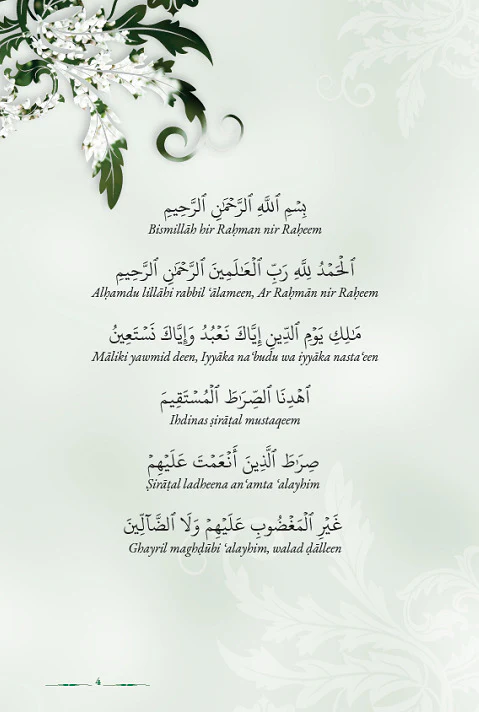 بِسْمِ ٱللَّهِ ٱلرَّحْمَٰنِ ٱلرَّحِيمِ
Bismillāh hir Raḥman nir Raḥeem
ٱلْحَمْدُ لِلَّهِ رَبِّ ٱلْعَٰلَمِينَ ٱلرَّحْمَٰنِ ٱلرَّحِيمِ
Alḥamdu lillāhi rabbil ‘ālameen, Ar Raḥmān nir Raḥeem
مَٰلِكِ يَوْمِ ٱلدِّينِ إِيَّاكَ نَعْبُدُ وَإِيَّاكَ نَسْتَعِينُ
Māliki yawmid deen, Iyyāka na‘budu wa iyyāka nasta‘een
ٱهْدِنَا ٱلصِّرَٰطَ ٱلْمُسْتَقِيمَ
Ihdinas ṣirāṭal mustaqeem
صِرَٰطَ ٱلَّذِينَ أَنْعَمْتَ عَلَيْهِمْ
Ṣirāṭal ladheena an‘amta ‘alayhim
غَيْرِ ٱلْمَغْضُوبِ عَلَيْهِمْ وَلَا ٱلضَّآلِّينَ
Ghayril maghḍūbi ‘alayhim, walad ḍālleen
4